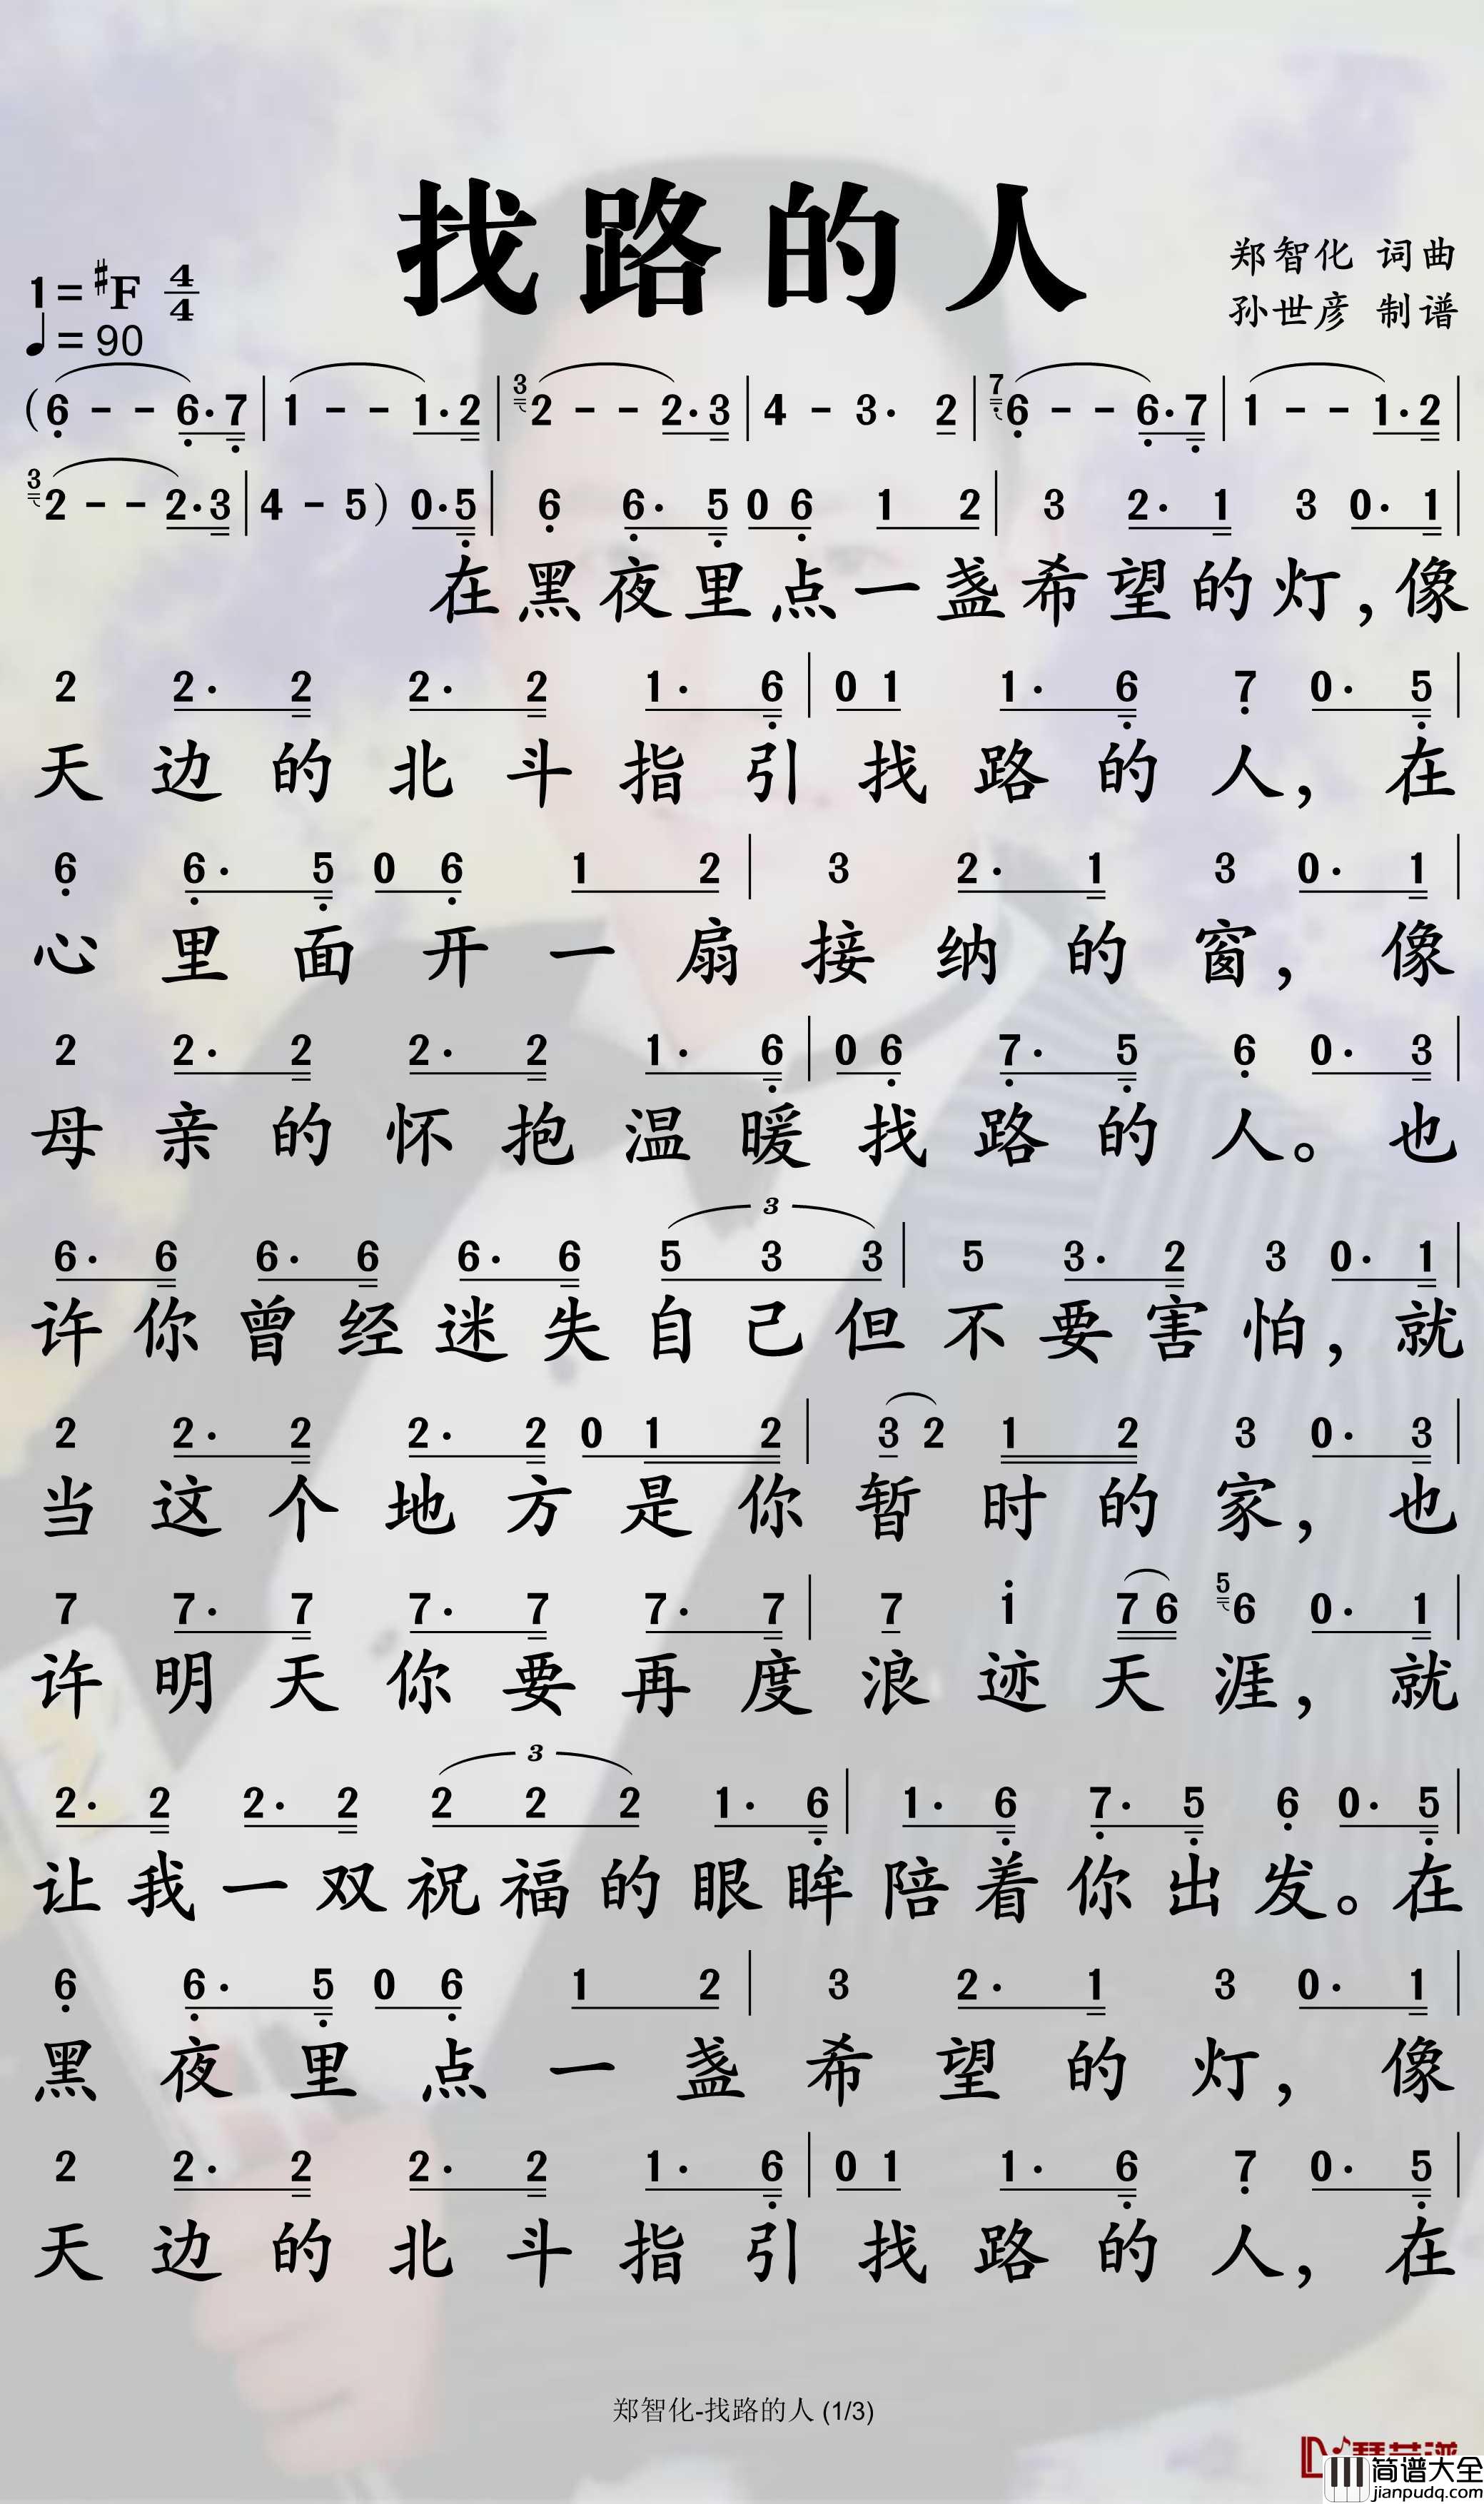 找路的人
郑智化 词曲
孙世彦 制谱
1=♯F 4/4
♩=90
(6 - - 6·7 | 1 - - 1·2 | 3 2 - - 2·3 | 4 - 3· 2 | 7 6 - - 6·7 | 1 - - 1·2 |
3 2 - - 2·3 | 4 - 5) 0·5 | 6 6· 5 0 6 1 2 | 3 2· 1 3 0· 1 |
在黑夜里点一盏希望的灯,像
2 2· 2 2· 2 1· 6 | 0 1 1· 6 7 0· 5 |
天边的北斗指引找路的人,在
6 6· 5 0 6 1 2 | 3 2· 1 3 0· 1 |
心里面开一扇接纳的窗,像
2 2· 2 2· 2 1· 6 | 0 6 7· 5 6 0· 3 |
母亲的怀抱温暖找路的人。也
3
6· 6 6· 6 6· 6 5 3 3 | 5 3· 2 3 0· 1 |
许你曾经迷失自己但不要害怕,就
2 2· 2 2· 2 0 1 2 | 3 2 1 2 3 0· 3 |
当这个地方是你暂时的家,也
7 7· 7 7· 7 7· 7 | 7 i 7 6 5 6 0· 1 |
许明天你要再度浪迹天涯,就
3
2· 2 2· 2 2 2 2 1· 6 | 1· 6 7· 5 6 0· 5 |
让我一双祝福的眼眸陪着你出发。在
6 6· 5 0 6 1 2 | 3 2· 1 3 0· 1 |
黑夜里点一盏希望的灯,像
2 2· 2 2· 2 1· 6 | 0 1 1· 6 7 0· 5 |
天边的北斗指引找路的人,在
郑智化-找路的人 (1/3)
简谱大全
jianpudq.com